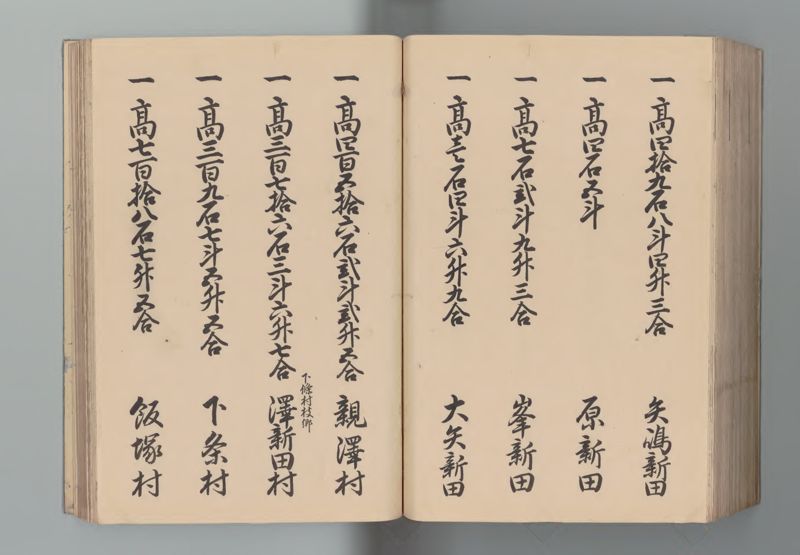 一 高四拾九石八斗四升三合 矢嶋新田
一 高四石五斗 原新田
一 高七石弐斗九升三合 峯新田
一 高壱石四斗六升九合 大矢新田
一 高四百五拾六石弐斗弐升五合 親澤村
一 高三百七拾六石三斗六升七合 下條村枝郷 澤新田村
一 高三百九石七斗五升五合 下条村
一 高七百拾八石七升五合 飯塚村